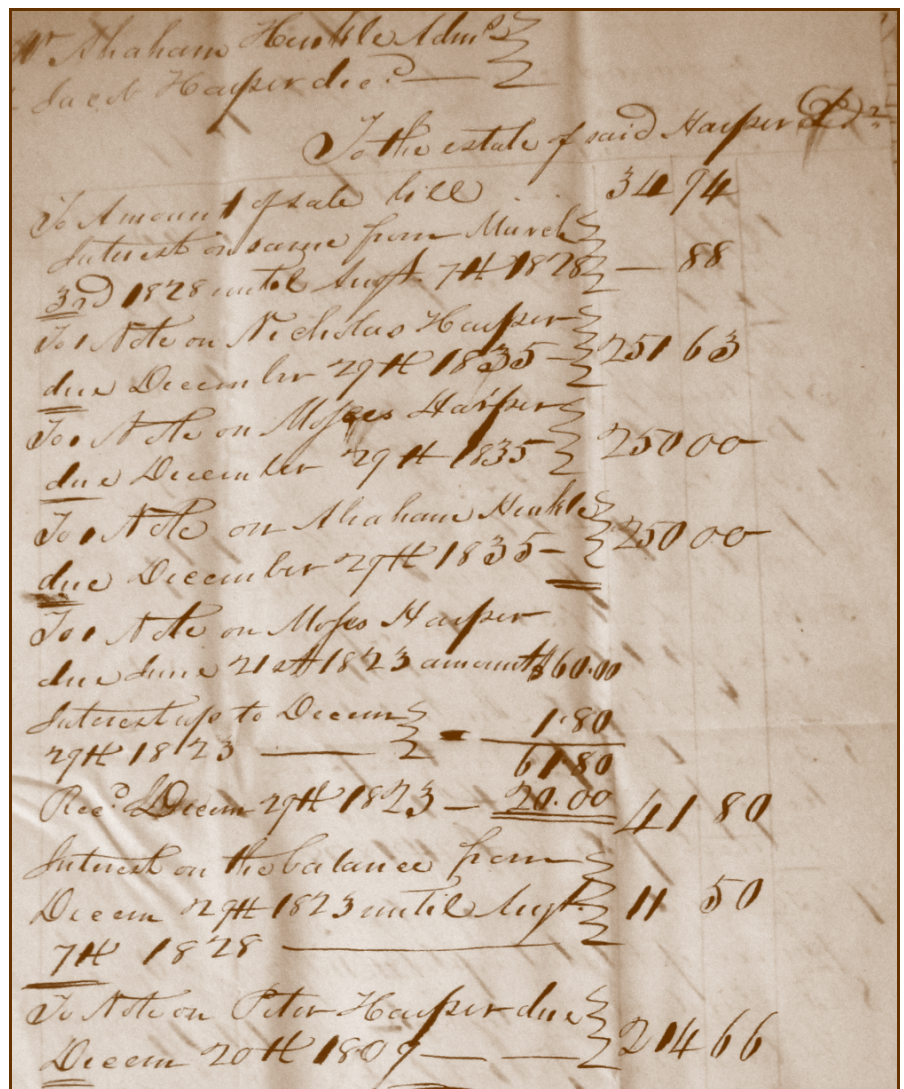 Mr Abraham Henkle Admr
Jacob Harper decd
To the estate of said Harper Dr
To Amount of sale bill 34 94
Interest on same from March
3rd 1828 until Augt. 7th 1828 — 88
To 1 Note on Nicholas Harper
due December 29th 1835 — 251 63
To 1 Note on Moses Harper
due December 29th 1835 250 00
To 1 Note on Abraham Henkle
due December 29th 1835 — 250 00
To 1 Note on Moses Harper
due June 21st 1823 amount $60.00
Interest up to Decem 1.80
29th 1823 — 61.80
Recd Decem 29th 1823 — 20.00 41 80
Interest on the balance from
Decem 29th 1823 until Augt. 11 50
7th 1828
To Note on Peter Harper due
Decem 20th 1809 — — 214 66